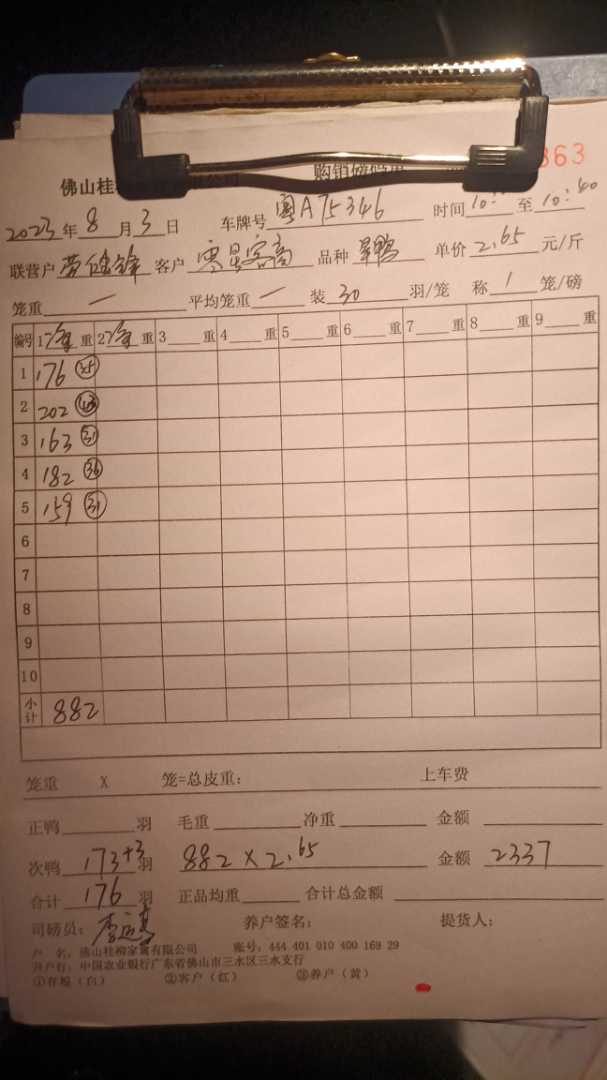 佛山桂
363
2023年8月3日 车牌号 粤A75346 时间 10: 至 10:40
联营户 客户 品种 单价 2.65 元/斤
笼重 一 平均笼重 一 装 30 羽/笼 称 1 笼/磅
编号 1 重 2 重 3 重 4 重 5 重 6 重 7 重 8 重 9 重
1 176 35
2 202
3 163 31
4 182 36
5 159 31
6
7
8
9
10
小计 882
笼重 X 笼=总皮重: 上车费
正鸭 羽 毛重 净重 金额
次鸭 173+3 羽 882×2.65 金额 2337
合计 176 羽 正品均重 合计总金额
司磅员: 养户签名: 提货人:
户 名: 佛山桂柳家禽有限公司 账号: 444 401 010 400 169 29
开户行: 中国农业银行广东省佛山市三水区三水支行
①存根(白) ②客户(红) ③养户(黄)